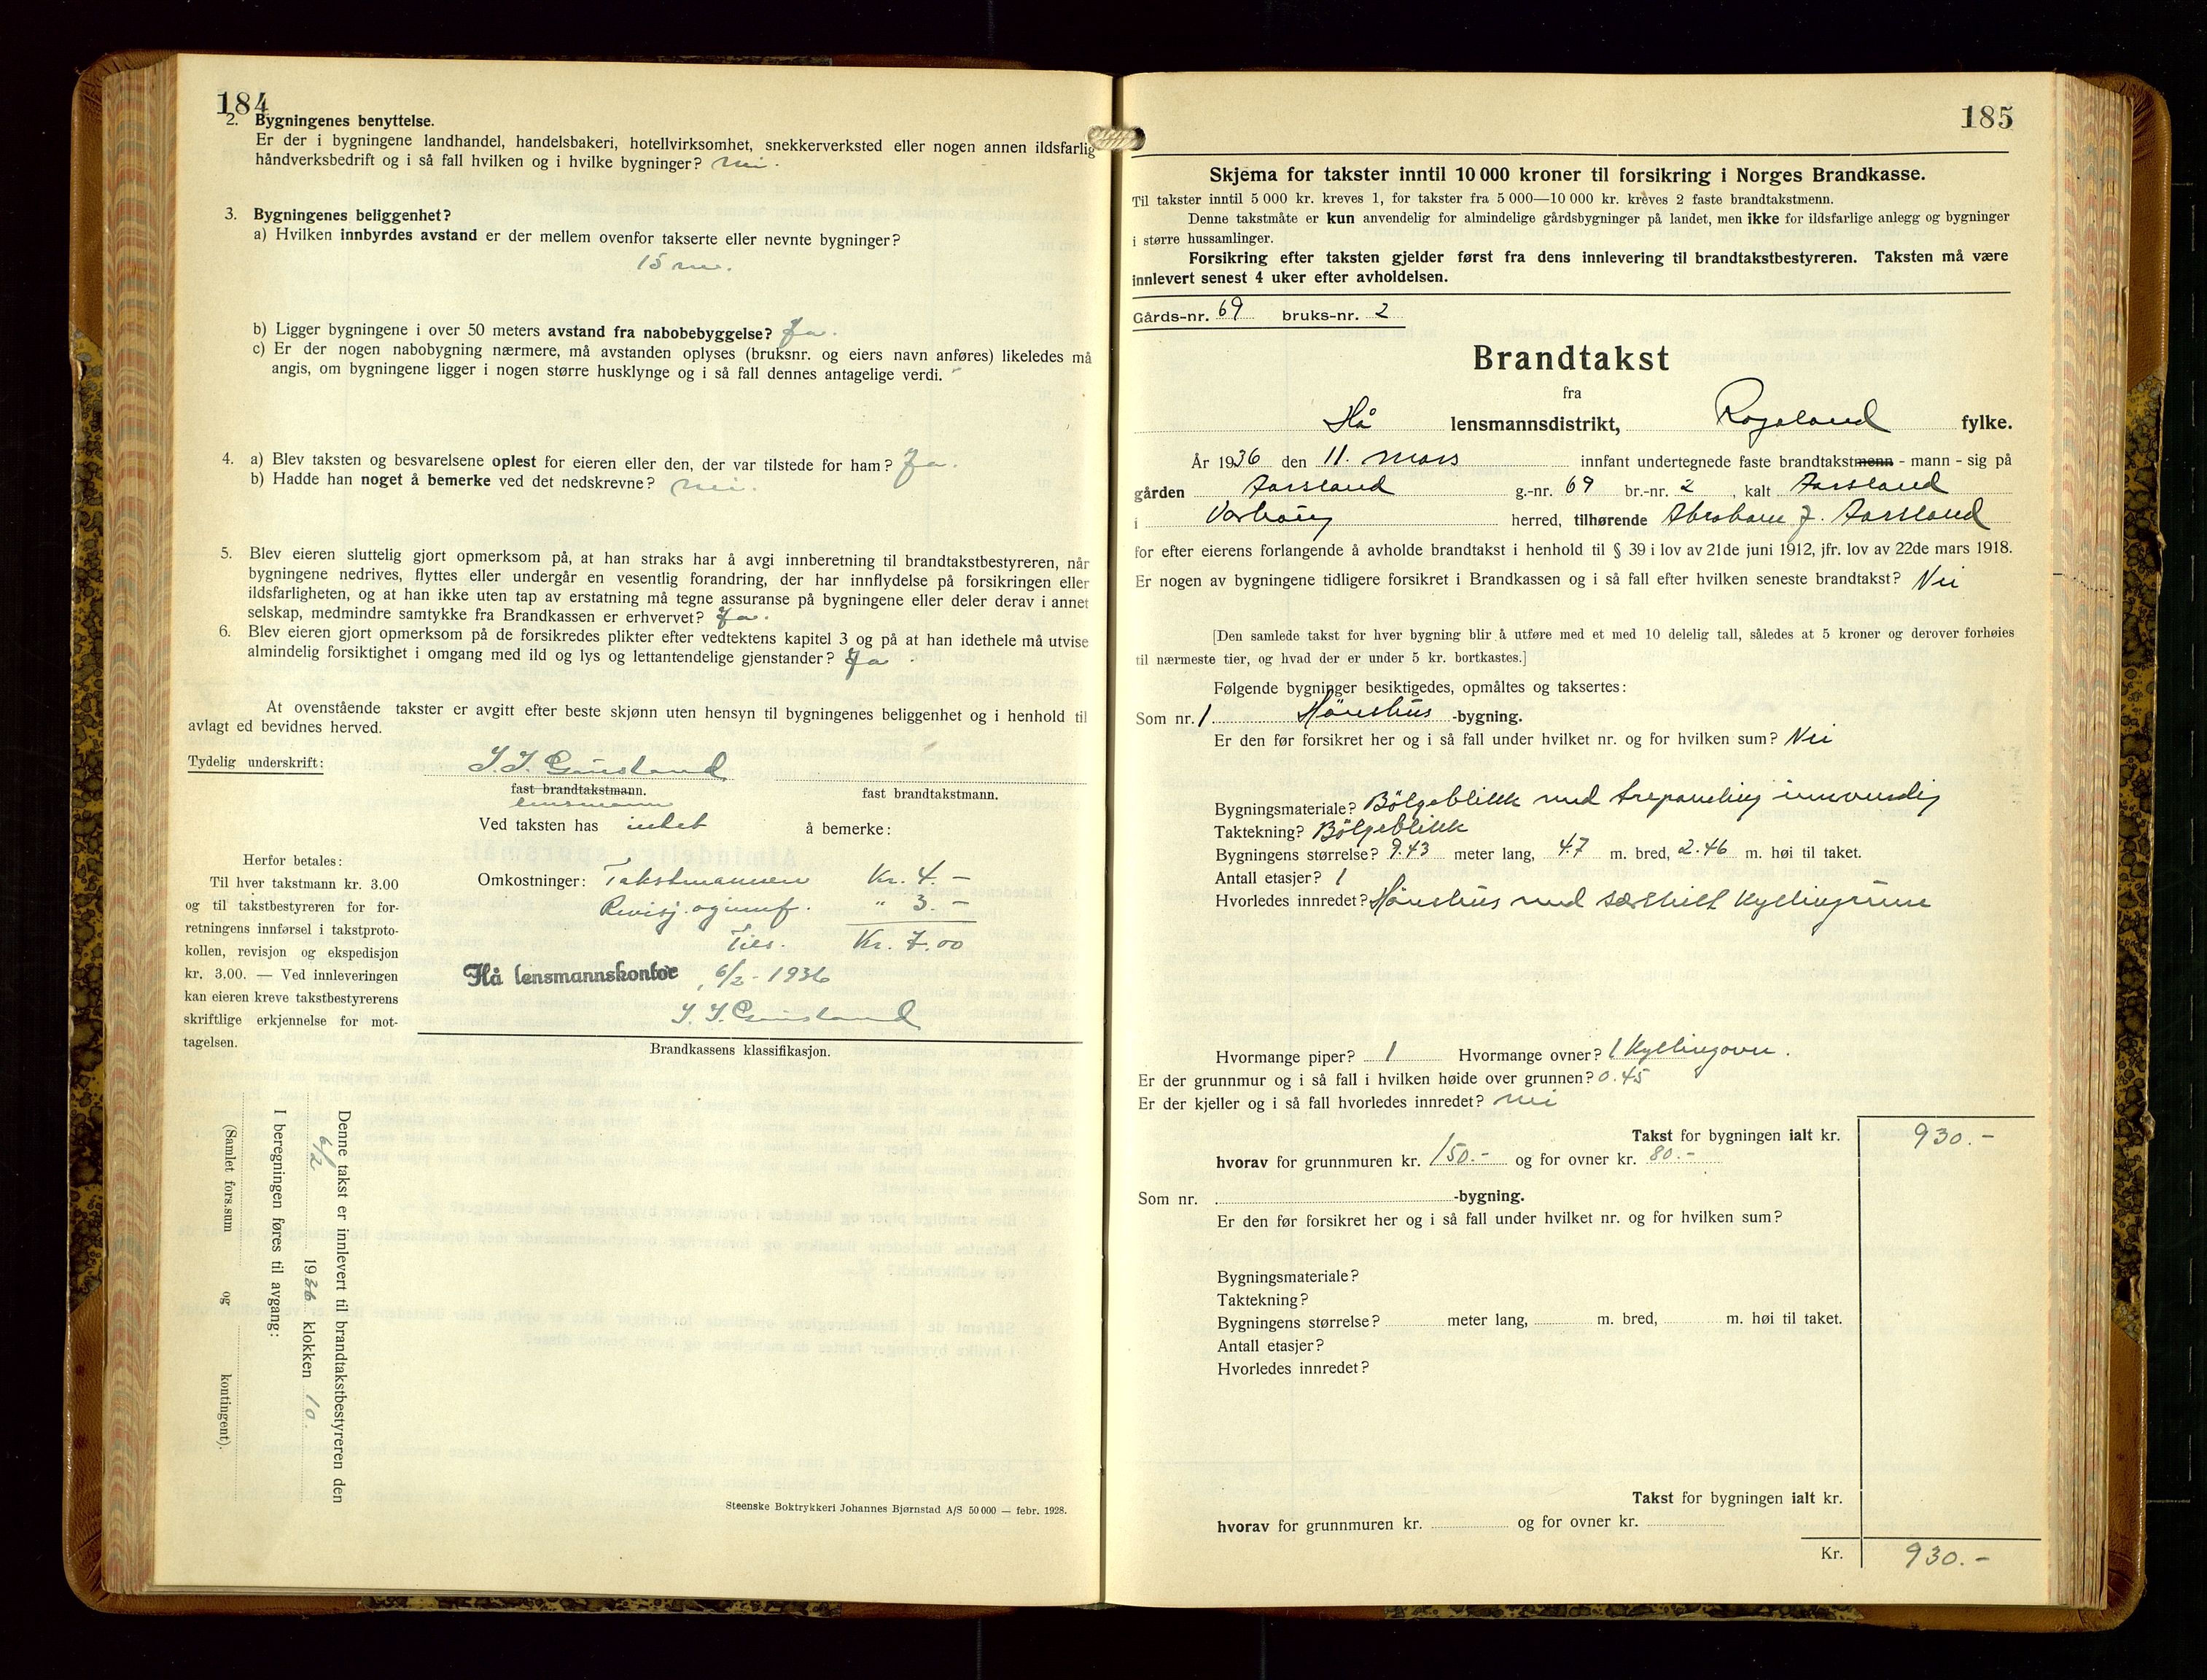 184
2. Bygningenes benyttelse.
Er der i bygningene landhandel, handelsbakeri, hotellvirksomhet, snekkerverksted eller nogen annen ildsfarlig
håndverksbedrift og i så fall hvilken og i hvilke bygninger? nei.
3. Bygningenes beliggenhet?
a) Hvilken innbyrdes avstand er der mellem ovenfor takserte eller nevnte bygninger?
15 m.
b) Ligger bygningene i over 50 meters avstand fra nabobebyggelse? Ja.
c) Er der nogen nabobygning nærmere, må avstanden oplyses (bruksnr. og eiers navn anføres) likeledes må
angis, om bygningene ligger i nogen større husklynge og i så fall dennes antagelige verdi. -
4. a) Blev taksten og besvarelsene oplest for eieren eller den, der var tilstede for ham? Ja.
b) Hadde han noget å bemerke ved det nedskrevne? nei.
5. Blev eieren sluttelig gjort opmerksom på, at han straks har å avgi innberetning til brandtakstbestyreren, når
bygningene nedrives, flyttes eller undergår en vesentlig forandring, der har innflydelse på forsikringen eller
ildsfarligheten, og at han ikke uten tap av erstatning må tegne assuranse på bygningene eller deler derav i annet
selskap, medmindre samtykke fra Brandkassen er erhvervet? Ja.
6. Blev eieren gjort opmerksom på de forsikredes plikter efter vedtektens kapitel 3 og på at han idethele må utvise
almindelig forsiktighet i omgang med ild og lys og lettantendelige gjenstander? Ja
At ovenstående takster er avgitt efter beste skjønn uten hensyn til bygningenes beliggenhet og i henhold til
avlagt ed bevidnes herved.
Tydelig underskrift:
fast brandtakstmann. fast brandtakstmann.
lensmann
Ved taksten has intet å bemerke:
Herfor betales:
Til hver takstmann kr. 3.00
og til takstbestyreren for for-
retningens innførsel i takstproto-
kollen, revisjon og ekspedisjon
kr. 3.00. — Ved innleveringen
kan eieren kreve takstbestyrerens
skriftlige erkjennelse for mot-
tagelsen.
Omkostninger: Takstmannen Kr. 4.-
Revisj. og innf. " 3.-
Tils. Kr. 7.00
Hå lensmannskontor, 6/2-1936
Brandkassens klassifikasjon.
Denne takst er innlevert til brandtakstbestyreren den
6/2 1936 klokken 10.
I beregningen føres til avgang:
(Samlet fors.sum og kontingent).
Steenske Boktrykkeri Johannes Bjørnstad A/S 50 000 — febr. 1928.
185
Skjema for takster inntil 10 000 kroner til forsikring i Norges Brandkasse.
Til takster inntil 5 000 kr. kreves 1, for takster fra 5 000—10 000 kr. kreves 2 faste brandtakstmenn.
Denne takstmåte er kun anvendelig for almindelige gårdsbygninger på landet, men ikke for ildsfarlige anlegg og bygninger
i større hussamlinger.
Forsikring efter taksten gjelder først fra dens innlevering til brandtakstbestyreren. Taksten må være
innlevert senest 4 uker efter avholdelsen.
Gårds-nr. 69 bruks-nr. 2
Brandtakst
fra
Hå lensmannsdistrikt, Rogaland fylke.
År 1936 den 11. mars innfant undertegnede faste brandtakstmenn - mann - sig på
gården Aarsland g.-nr. 69 br.-nr. 2, kalt Aarsland
i Varhaug herred, tilhørende Abraham J. Aarsland
for efter eierens forlangende å avholde brandtakst i henhold til § 39 i lov av 21de juni 1912, jfr. lov av 22de mars 1918.
Er nogen av bygningene tidligere forsikret i Brandkassen og i så fall efter hvilken seneste brandtakst? Nei
[Den samlede takst for hver bygning blir å utføre med et med 10 delelig tall, således at 5 kroner og derover forhøies
til nærmeste tier, og hvad der er under 5 kr. bortkastes.]
Følgende bygninger besiktigedes, opmåltes og taksertes:
Som nr. 1 Hønshus -bygning.
Er den før forsikret her og i så fall under hvilket nr. og for hvilken sum? Nei
Bygningsmateriale? Bølgeblikk med trepaneling innvendig
Taktekning? Bølgeblikk
Bygningens størrelse? 9.43 meter lang, 4.7 m. bred, 2.46 m. høi til taket.
Antall etasjer? 1
Hvorledes innredet? Hønshus med særskilt Kyllingrum
Hvormange piper? 1 Hvormange ovner? 1 Kyllingovn.
Er der grunnmur og i så fall i hvilken høide over grunnen? 0.45
Er der kjeller og i så fall hvorledes innredet? nei
Takst for bygningen ialt kr. 930.-
hvorav for grunnmuren kr. 150.- og for ovner kr. 80.-
Som nr. -bygning.
Er den før forsikret her og i så fall under hvilket nr. og for hvilken sum?
Bygningsmateriale?
Taktekning?
Bygningens størrelse? meter lang, m. bred, m. høi til taket.
Antall etasjer?
Hvorledes innredet?
Takst for bygningen ialt kr.
hvorav for grunnmuren kr. og for ovner kr.
Kr. 930.-